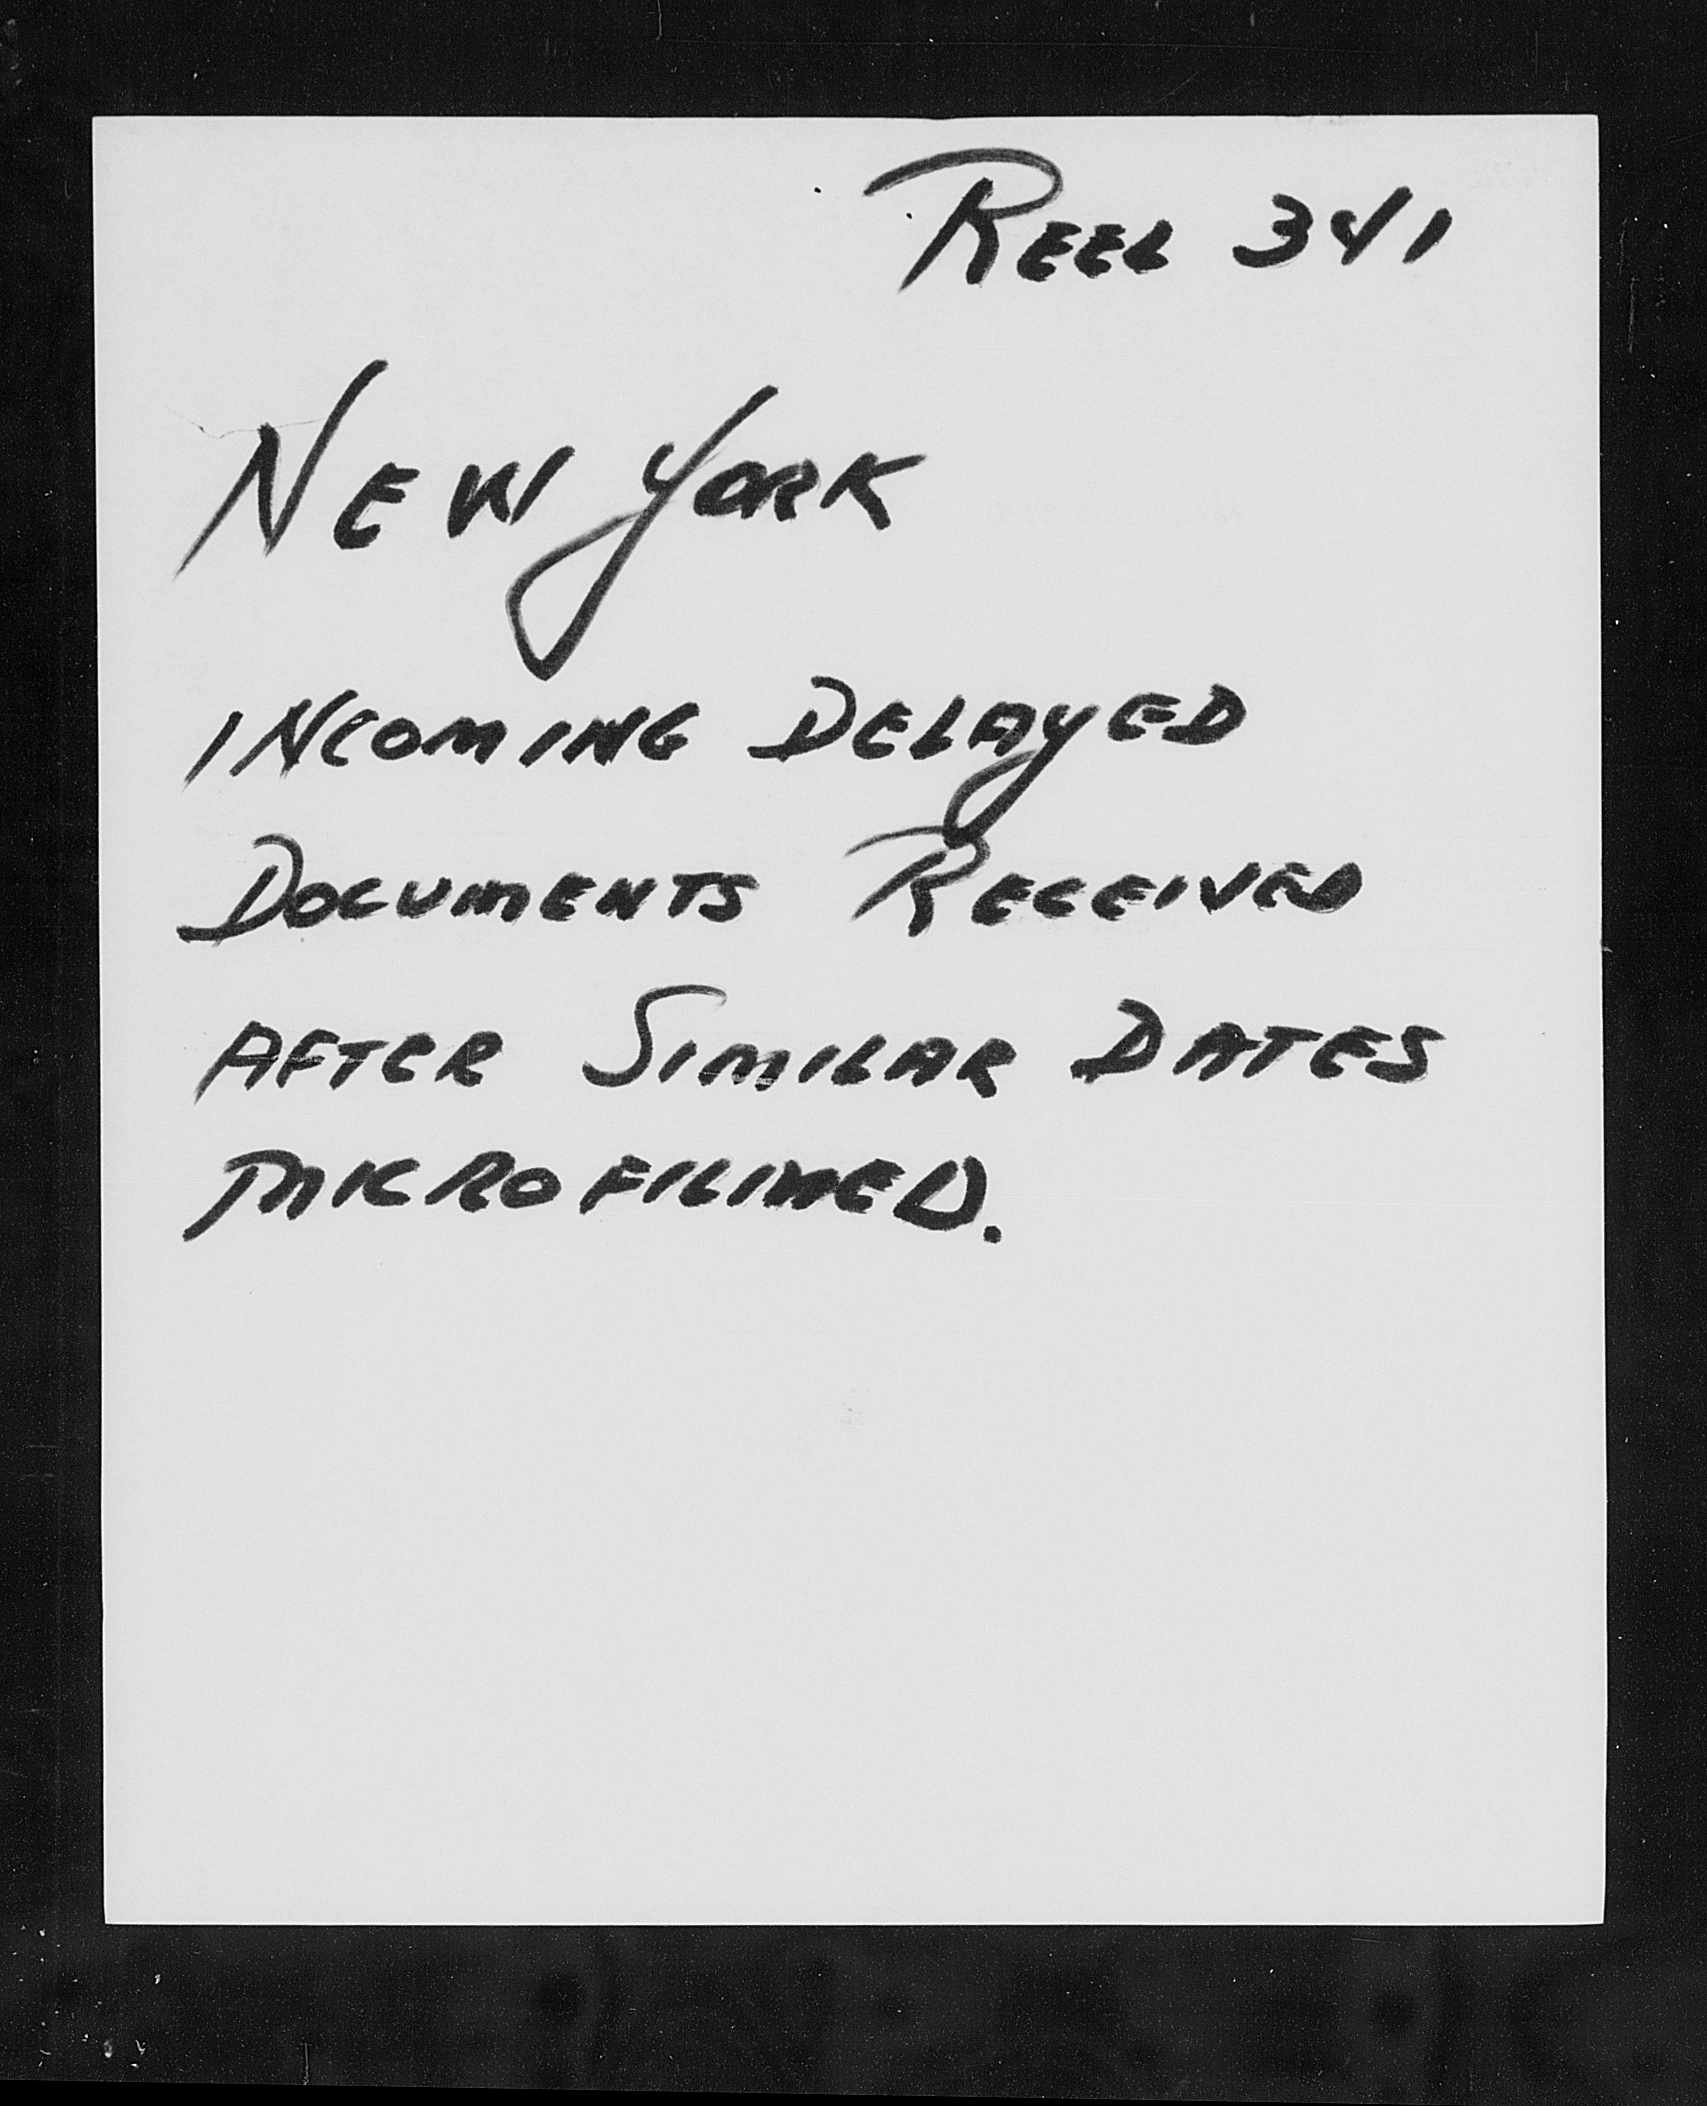 REEL 341
NEW YORK
INCOMING DELAYED
DOCUMENTS RECEIVED
AFTER SIMILAR DATES
MICROFILMED.